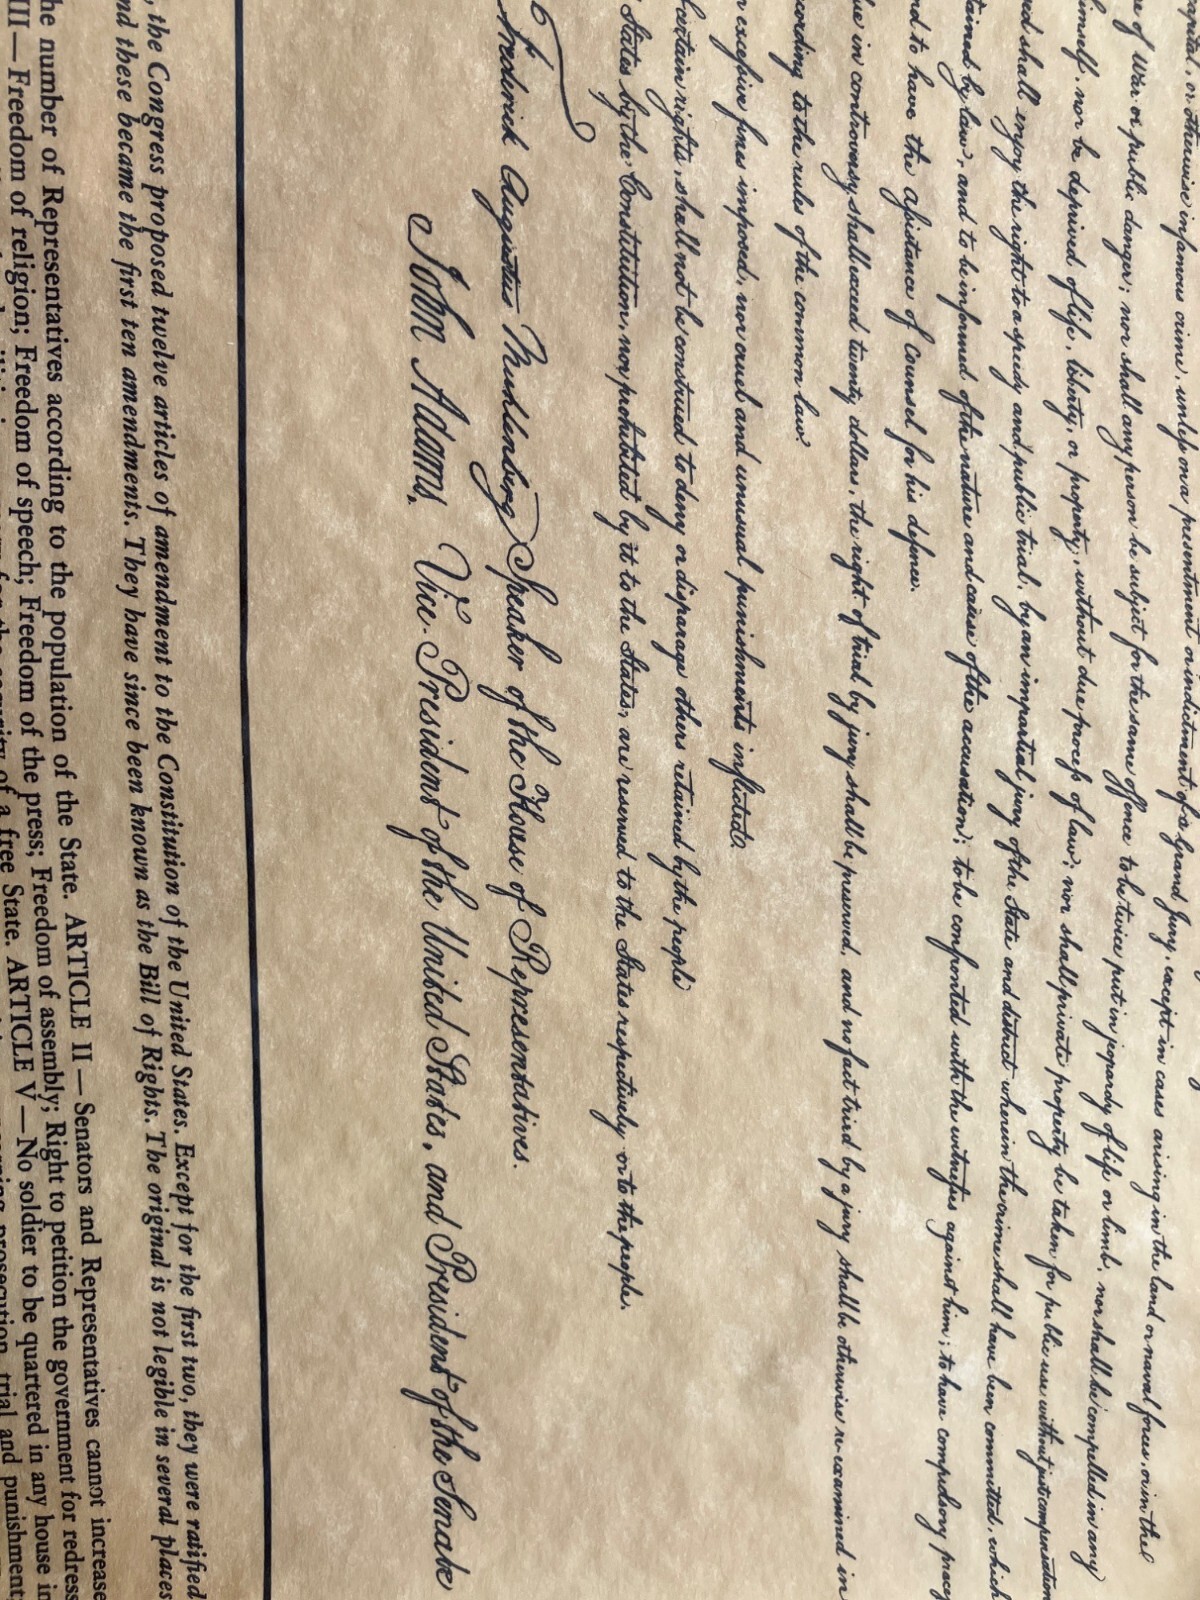 capital, or otherwise infamous crime, unless on a presentment or indictment of a Grand Jury, except in cases arising in the land or naval forces, or in the
of War or public danger; nor shall any person be subject for the same offence to be twice put in jeopardy of life or limb, nor shall be compelled in any
himself, nor be deprived of life, liberty, or property, without due process of law; nor shall private property be taken for public use without just compensation
shall enjoy the right to a speedy and public trial, by an impartial jury of the State and district wherein the crime shall have been committed, which
by law, and to be informed of the nature and cause of the accusation; to be confronted with the witnesses against him; to have compulsory
to have the assistance of counsel for his defence.
in controversy shall exceed twenty dollars, the right of trial by jury shall be preserved, and no fact tried by a jury shall be otherwise re-examined in
to the rules of the common law.
excessive fines imposed, nor cruel and unusual punishments inflicted.
certain rights, shall not be construed to deny or disparage others retained by the people
States by the Constitution, nor prohibited by it to the States, are reserved to the States respectively or to the people.
Frederick Augustus Muhlenberg Speaker of the House of Representatives.
John Adams, Vice-President of the United States, and President of the Senate
, the Congress proposed twelve articles of amendment to the Constitution of the United States. Except for the first two, they were ratified
nd these became the first ten amendments. They have since been known as the Bill of Rights. The original is not legible in several places
he number of Representatives according to the population of the State. ARTICLE II—Senators and Representatives cannot increase
III—Freedom of religion; Freedom of speech; Freedom of the press; Freedom of assembly; Right to petition the government for redress
the security of a free State. ARTICLE V—No soldier to be quartered in any house in
prosecution, trial and punishment;